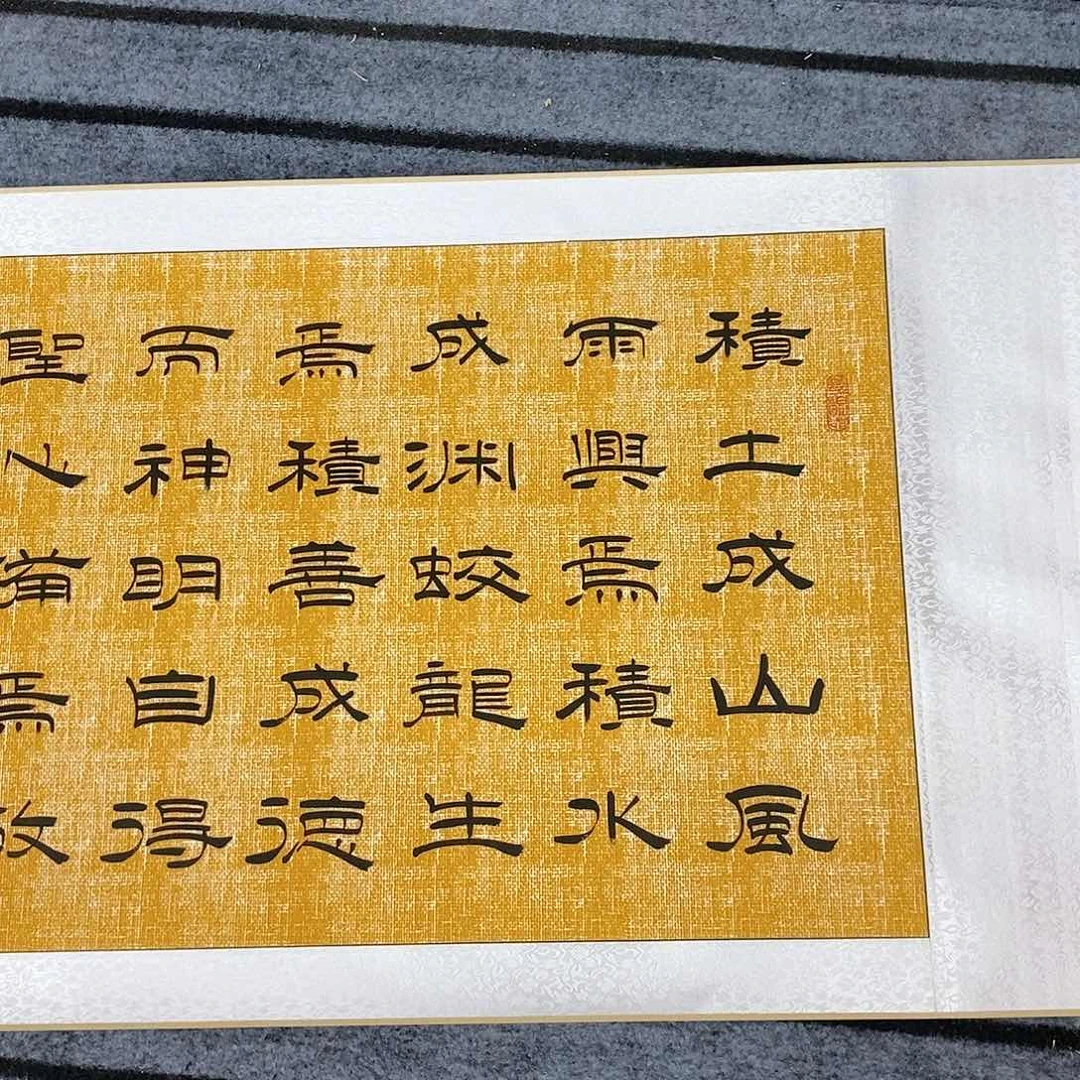 積土成山風
雨興焉積水
成渊蛟龍生
焉積善成德
而神明自得
聖心備焉故